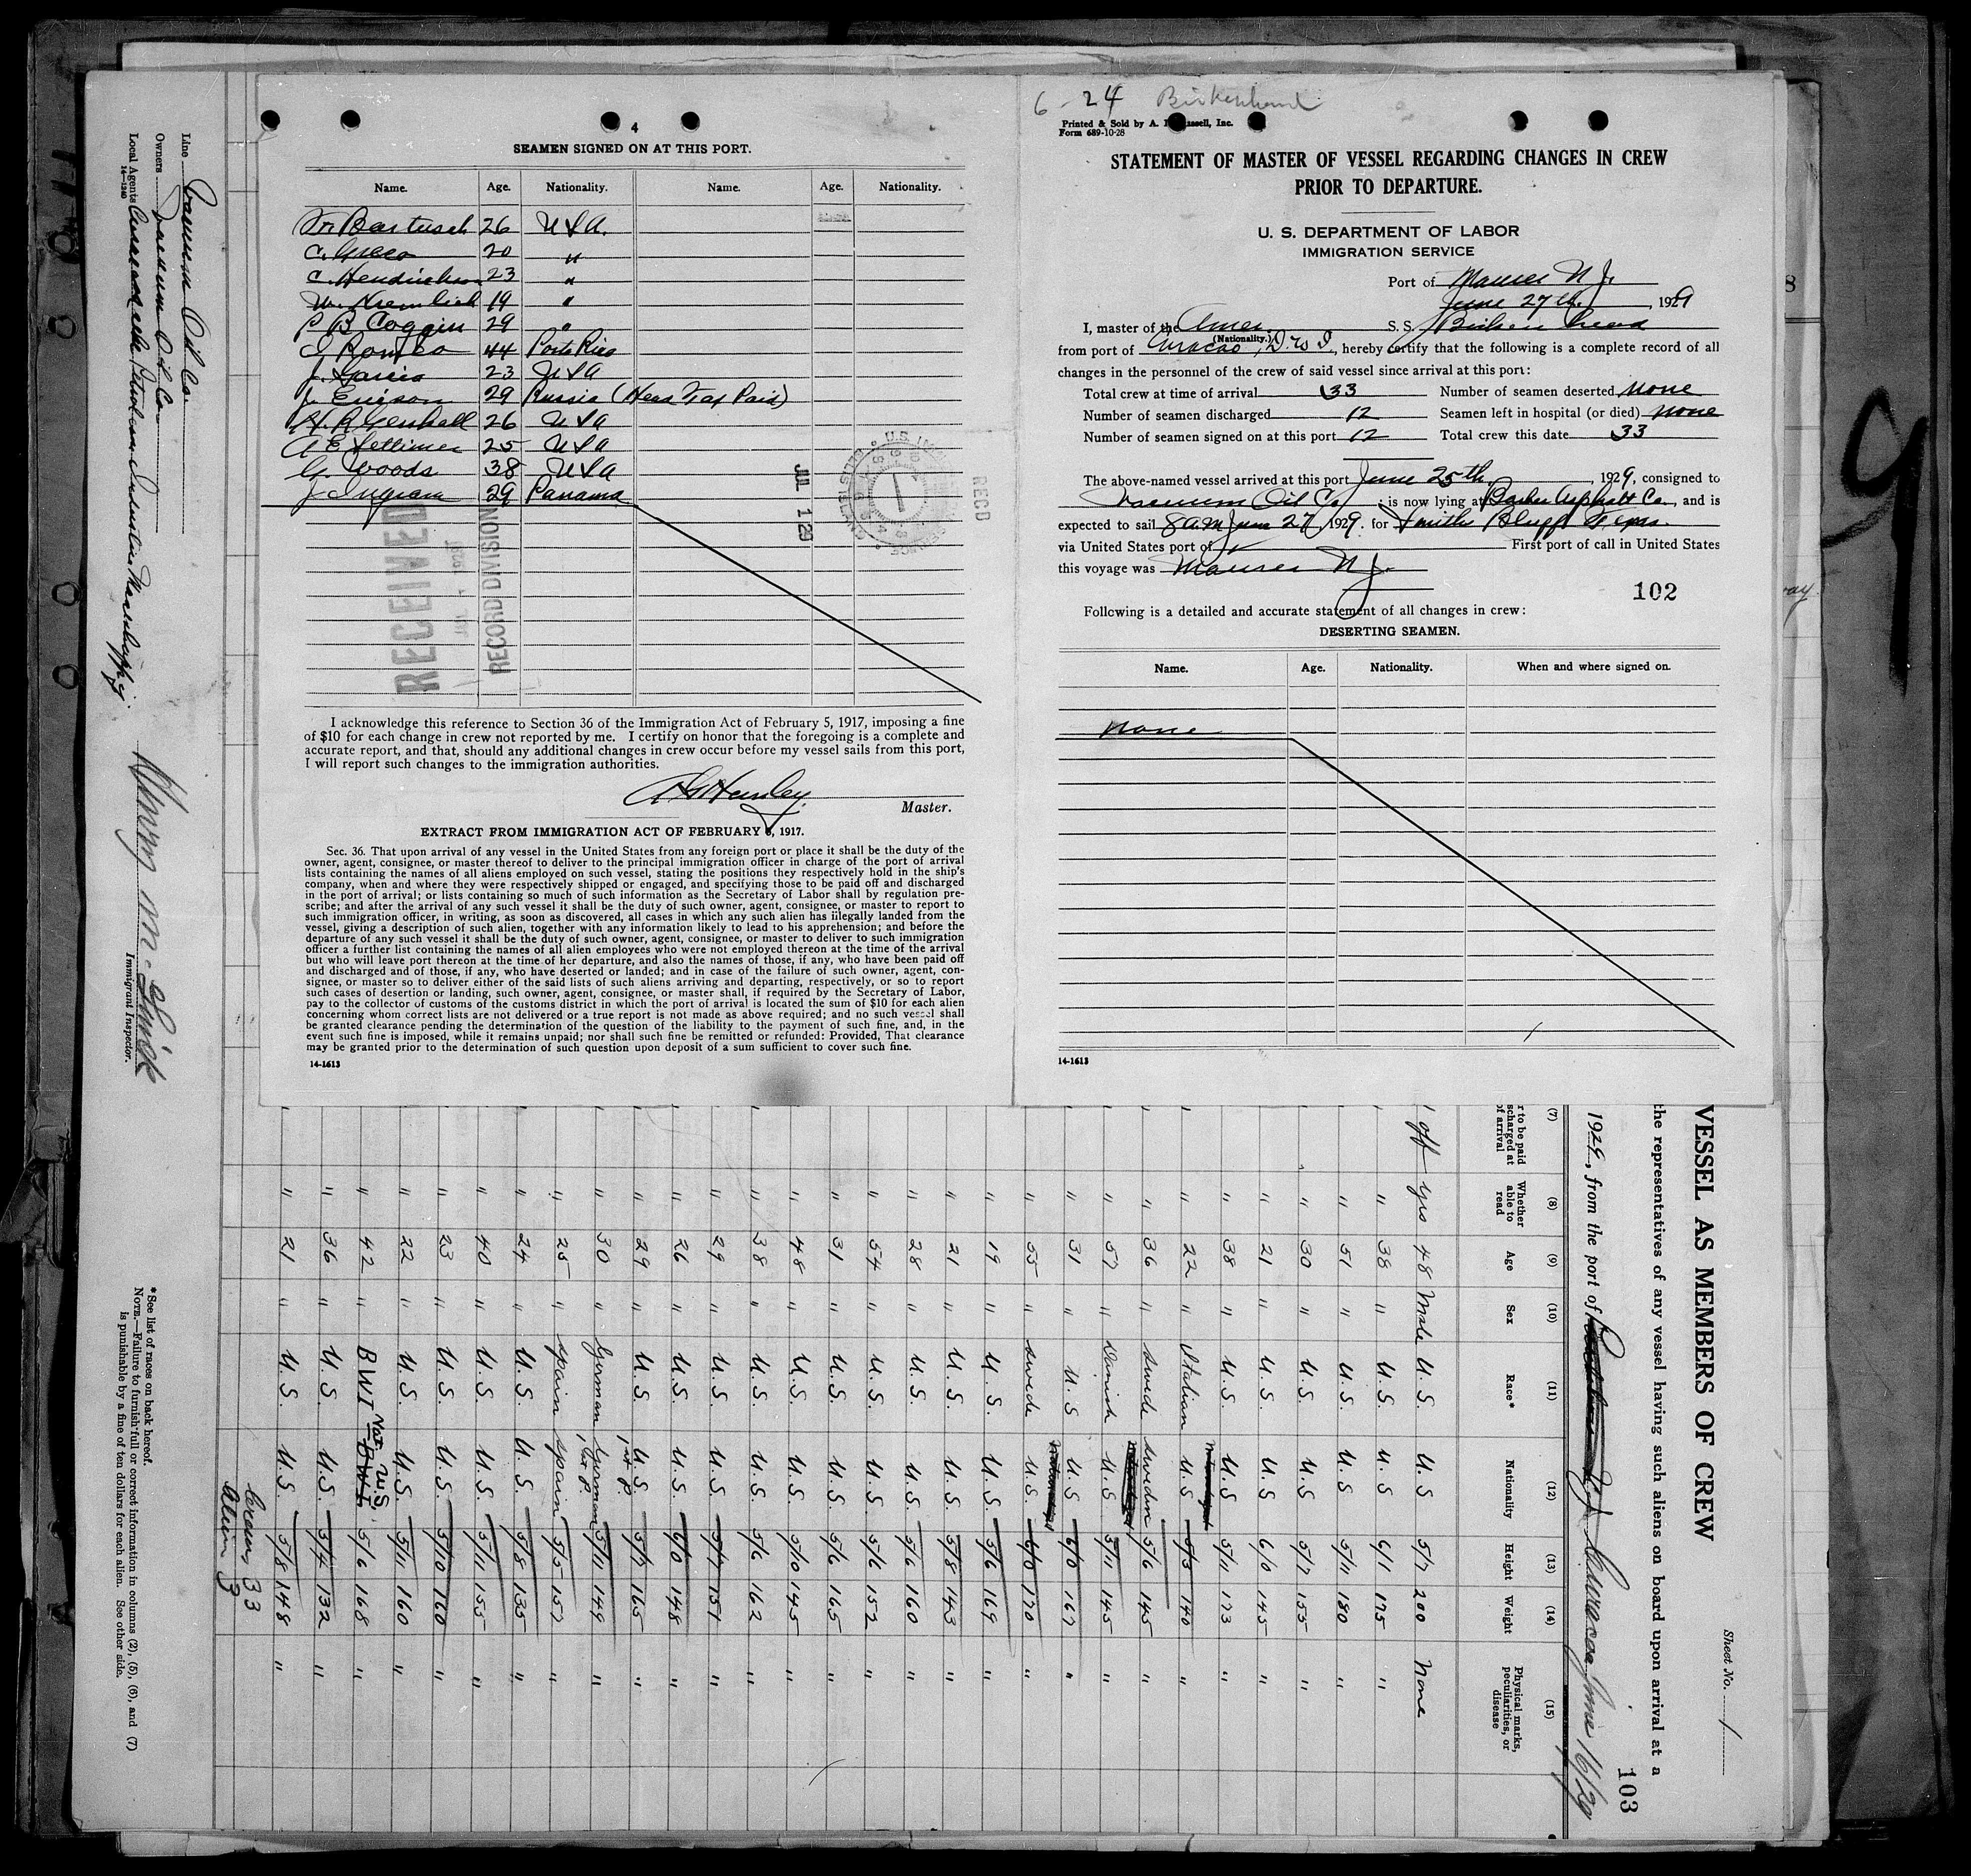 4
SEAMEN SIGNED ON AT THIS PORT.
Name. Age. Nationality. Name. Age. Nationality.
Bartusch 26 USA.
C. Greco 20 "
C. Hendrickson 23 "
19 "
P B Coggin 29 "
Romeo 44 Porto Rico
J. Garcia 23 USA
J. Ericson 29 Russia (Head Tax Paid)
26 USA
25 USA
G. Woods 38 USA
J Ingram 29 Panama
JUL 1 29
RECD
RECEIVED
RECORD DIVISION
I acknowledge this reference to Section 36 of the Immigration Act of February 5, 1917, imposing a fine
of $10 for each change in crew not reported by me. I certify on honor that the foregoing is a complete and
accurate report, and that, should any additional changes in crew occur before my vessel sails from this port,
I will report such changes to the immigration authorities.
Master.
EXTRACT FROM IMMIGRATION ACT OF FEBRUARY 5, 1917.
Sec. 36. That upon arrival of any vessel in the United States from any foreign port or place it shall be the duty of the
owner, agent, consignee, or master thereof to deliver to the principal immigration officer in charge of the port of arrival
lists containing the names of all aliens employed on such vessel, stating the positions they respectively hold in the ship's
company, when and where they were respectively shipped or engaged, and specifying those to be paid off and discharged
in the port of arrival; or lists containing so much of such information as the Secretary of Labor shall by regulation pre-
scribe; and after the arrival of any such vessel it shall be the duty of such owner, agent, consignee, or master to report to
such immigration officer, in writing, as soon as discovered, all cases in which any such alien has illegally landed from the
vessel, giving a description of such alien, together with any information likely to lead to his apprehension; and before the
departure of any such vessel it shall be the duty of such owner, agent, consignee, or master to deliver to such immigration
officer a further list containing the names of all alien employees who were not employed thereon at the time of the arrival
but who will leave port thereon at the time of her departure, and also the names of those, if any, who have been paid off
and discharged and of those, if any, who have deserted or landed; and in case of the failure of such owner, agent, con-
signee, or master so to deliver either of the said lists of such aliens arriving and departing, respectively, or so to report
such cases of desertion or landing, such owner, agent, consignee, or master shall, if required by the Secretary of Labor,
pay to the collector of customs of the customs district in which the port of arrival is located the sum of $10 for each alien
concerning whom correct lists are not delivered or a true report is not made as above required; and no such vessel shall
be granted clearance pending the determination of the question of the liability to the payment of such fine, and, in the
event such fine is imposed, while it remains unpaid; nor shall such fine be remitted or refunded: Provided, That clearance
may be granted prior to the determination of such question upon deposit of a sum sufficient to cover such fine.
14-1613
6-24 Birkenhead
Printed & Sold by A. Inc.
Form 689-10-28
STATEMENT OF MASTER OF VESSEL REGARDING CHANGES IN CREW
PRIOR TO DEPARTURE.
U. S. DEPARTMENT OF LABOR
IMMIGRATION SERVICE
Port of Maurer N J.
June 27th, 1929
I, master of the Amer. S. S. Birkenhead
(Nationality.)
from port of Curacao, D.W.I., hereby certify that the following is a complete record of all
changes in the personnel of the crew of said vessel since arrival at this port:
Total crew at time of arrival 33 Number of seamen deserted none
Number of seamen discharged 12 Seamen left in hospital (or died) none
Number of seamen signed on at this port 12 Total crew this date 33
The above-named vessel arrived at this port June 25th, 1929, consigned to
Vacuum Oil Co; is now lying at Barber Asphalt Co, and is
expected to sail 8am June 27 1929. for Smiths Bluff Texas.
via United States port of First port of call in United States
this voyage was Maurer N J.
102
Following is a detailed and accurate statement of all changes in crew:
DESERTING SEAMEN.
Name. Age. Nationality. When and where signed on.
None
14-1613
9
VESSEL AS MEMBERS OF CREW
Sheet No. 1
the representatives of any vessel having such aliens on board upon arrival at a
103
1929, from the port of Curacao June 16/29
(7) (8) (9) (10) (11) (12) (13) (14) (15)
Whether able to read Age Sex Race* Nationality Height Weight Physical marks, peculiarities, or disease
off yes 48 Male U.S. U.S 5/7 200 None
" 38 " U.S. U.S 6/1 175 "
" 51 " U.S. U.S 5/11 180 "
" 30 " U.S. U.S 5/7 155 "
" 21 " U.S. U.S 6/0 145 "
" 38 " U.S. U.S 5/11 173 "
" 22 " Italian U.S 5/3 140 "
" 36 " Swede Sweden 5/6 145 "
" 57 " Danish U.S. 5/11 145 "
" 31 " U.S U.S 6/0 167 "
" 55 " Swede U.S. 6/0 170 "
" 19 " U.S. U.S. 5/6 169 "
" 21 " U.S. U.S. 5/8 143 "
" 28 " U.S. U.S. 5/6 160 "
" 54 " U.S. U.S. 5/6 152 "
" 31 " U.S. U.S. 5/6 165 "
" 48 " U.S. U.S. 5/10 145 "
" 38 " U.S. U.S. 5/6 162 "
" 29 " U.S. U.S. 5/7 151 "
" 26 " U.S. U.S. 6/0 148 "
" 29 " U.S. U.S. 1st P. 5/7 165 "
" 30 " German German 1st P. 5/11 149 "
" 25 " Spain Spain 5/5 157 "
" 24 " U.S. U.S. 5/8 135 "
" 40 " U.S. U.S. 5/11 155 "
" 23 " U.S. U.S. 5/10 160 "
" 22 " U.S. U.S. 5/11 160 "
" 42 " BWI Nat U.S. 5/6 168 "
" 36 " U.S. U.S. 5/4 132 "
" 21 " U.S. U.S. 5/8 148 "
Crew 33
Alien 3
Line Vacuum Oil Co.
Owners Vacuum Oil Co
Local Agents
14-1240
Immigrant Inspector.
*See list of races on back hereof.
NOTE.—Failure to furnish full or correct information in columns (2), (5), (6), and (7)
is punishable by a fine of ten dollars for each alien. See other side.